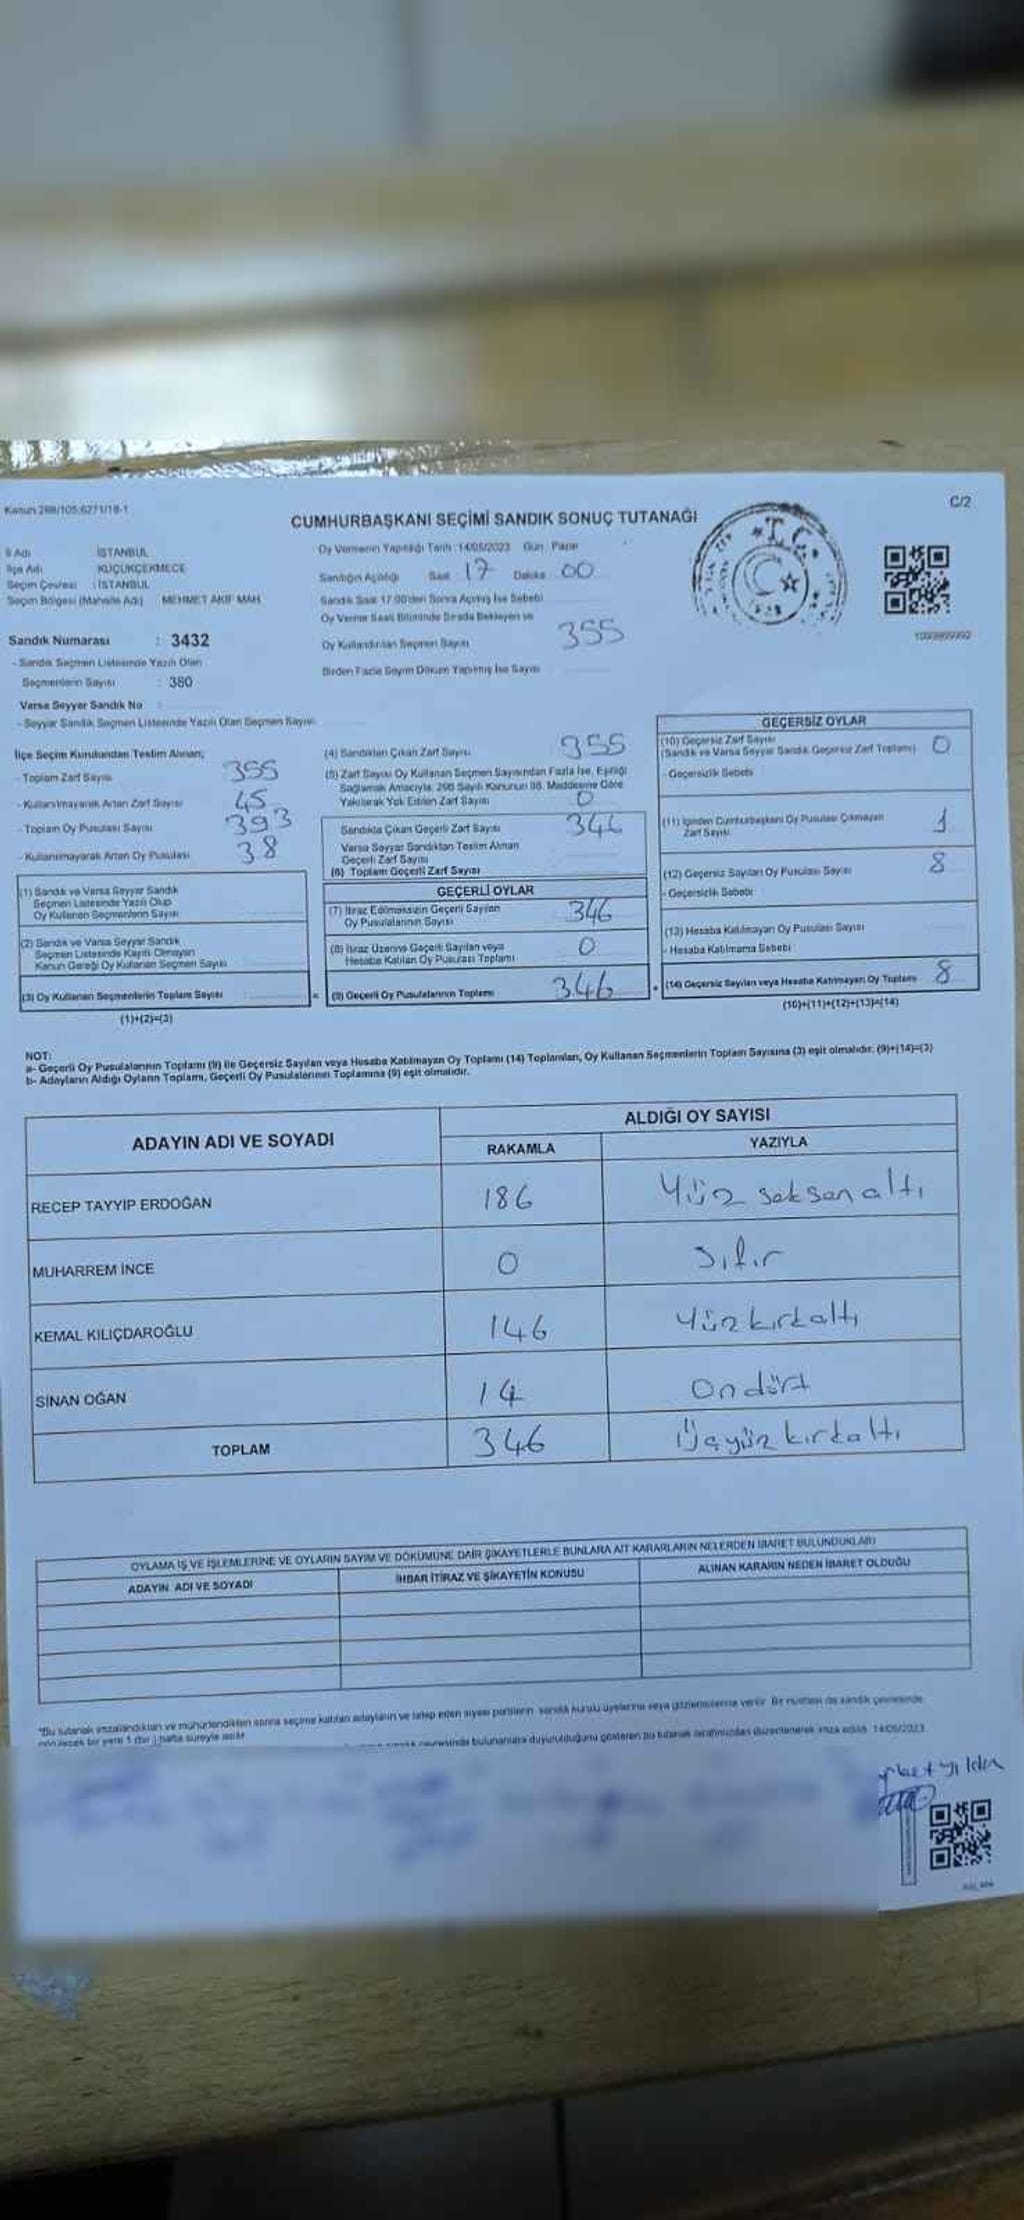 Kanun 298/105:6271/18-1
C/2
CUMHURBAŞKANI SEÇİMİ SANDIK SONUÇ TUTANAĞI
İl Adı İSTANBUL
İlçe Adı KÜÇÜKÇEKMECE
Seçim Çevresi : İSTANBUL
Seçim Bölgesi (Mahalle Adı) MEHMET AKİF MAH.
Sandık Numarası : 3432
- Sandık Seçmen Listesinde Yazılı Olan
Seçmenlerin Sayısı : 380
Varsa Seyyar Sandık No :
- Seyyar Sandık Seçmen Listesinde Yazılı Olan Seçmen Sayısı
Oy Vermenin Yapıldığı Tarih :14/05/2023 Gün : Pazar
Sandığın Açıldığı Saat 17 Dakika 00
Sandık Saat 17:00'den Sonra Açılmış İse Sebebi
Oy Verme Saati Bitiminde Sırada Bekleyen ve
Oy Kullandırılan Seçmen Sayısı 355
Birden Fazla Sayım Döküm Yapılmış İse Sayısı
T.C.
İlçe Seçim Kurulundan Teslim Alınan;
- Toplam Zarf Sayısı 355
- Kullanılmayarak Artan Zarf Sayısı 45
- Toplam Oy Pusulası Sayısı 393
- Kullanılmayarak Artan Oy Pusulası 38
(1) Sandık ve Varsa Seyyar Sandık
Seçmen Listesinde Yazılı Olup
Oy Kullanan Seçmenlerin Sayısı
(2) Sandık ve Varsa Seyyar Sandık
Seçmen Listesinde Kayıtlı Olmayan
Kanun Gereği Oy Kullanan Seçmen Sayısı
(3) Oy Kullanan Seçmenlerin Toplam Sayısı =
(1)+(2)=(3)
(4) Sandıktan Çıkan Zarf Sayısı 355
(5) Zarf Sayısı Oy Kullanan Seçmen Sayısından Fazla İse, Eşitliği
Sağlamak Amacıyla, 298 Sayılı Kanunun 98. Maddesine Göre
Yakılarak Yok Edilen Zarf Sayısı 0
Sandıkta Çıkan Geçerli Zarf Sayısı 346
Varsa Seyyar Sandıktan Teslim Alınan
Geçerli Zarf Sayısı
(6) Toplam Geçerli Zarf Sayısı
GEÇERLİ OYLAR
(7) İtiraz Edilmeksizin Geçerli Sayılan
Oy Pusulalarının Sayısı 346
(8) İtiraz Üzerine Geçerli Sayılan veya
Hesaba Katılan Oy Pusulası Toplamı 0
(9) Geçerli Oy Pusulalarının Toplamı 346 +
GEÇERSİZ OYLAR
(10) Geçersiz Zarf Sayısı
(Sandık ve Varsa Seyyar Sandık Geçersiz Zarf Toplamı) 0
- Geçersizlik Sebebi
(11) İçinden Cumhurbaşkanı Oy Pusulası Çıkmayan
Zarf Sayısı 1
(12) Geçersiz Sayılan Oy Pusulası Sayısı 8
- Geçersizlik Sebebi
(13) Hesaba Katılmayan Oy Pusulası Sayısı
- Hesaba Katılmama Sebebi
(14) Geçersiz Sayılan veya Hesaba Katılmayan Oy Toplamı 8
(10)+(11)+(12)+(13)=(14)
NOT:
a- Geçerli Oy Pusulalarının Toplamı (9) ile Geçersiz Sayılan veya Hesaba Katılmayan Oy Toplamı (14) Toplamları, Oy Kullanan Seçmenlerin Toplam Sayısına (3) eşit olmalıdır. (9)+(14)=(3)
b- Adayların Aldığı Oyların Toplamı, Geçerli Oy Pusulalarının Toplamına (9) eşit olmalıdır.
ADAYIN ADI VE SOYADI ALDIĞI OY SAYISI
RAKAMLA YAZIYLA
RECEP TAYYİP ERDOĞAN 186 Yüz seksen altı
MUHARREM İNCE 0 Sıfır
KEMAL KILIÇDAROĞLU 146 Yüzkırkaltı
SİNAN OĞAN 14 Ondört
TOPLAM 346 Üçyüz kırkaltı
OYLAMA İŞ VE İŞLEMLERİNE VE OYLARIN SAYIM VE DÖKÜMÜNE DAİR ŞİKAYETLERLE BUNLARA AİT KARARLARIN NELERDEN İBARET BULUNDUKLARI
ADAYIN ADI VE SOYADI İHBAR İTİRAZ VE ŞİKAYETİN KONUSU ALINAN KARARIN NEDEN İBARET OLDUĞU
*Bu tutanak imzalandıktan ve mühürlendikten sonra seçime katılan adayların ve talep eden siyasi partilerin sandık kurulu üyelerine veya gözlemcilerine verilir. Bir nüshası da sandık çevresinde
görülecek bir yere 1 (bir) hafta süreyle asılır
çevresinde bulunanlara duyurulduğunu gösteren bu tutanak tarafımızdan düzenlenerek imza edildi. 14/05/2023